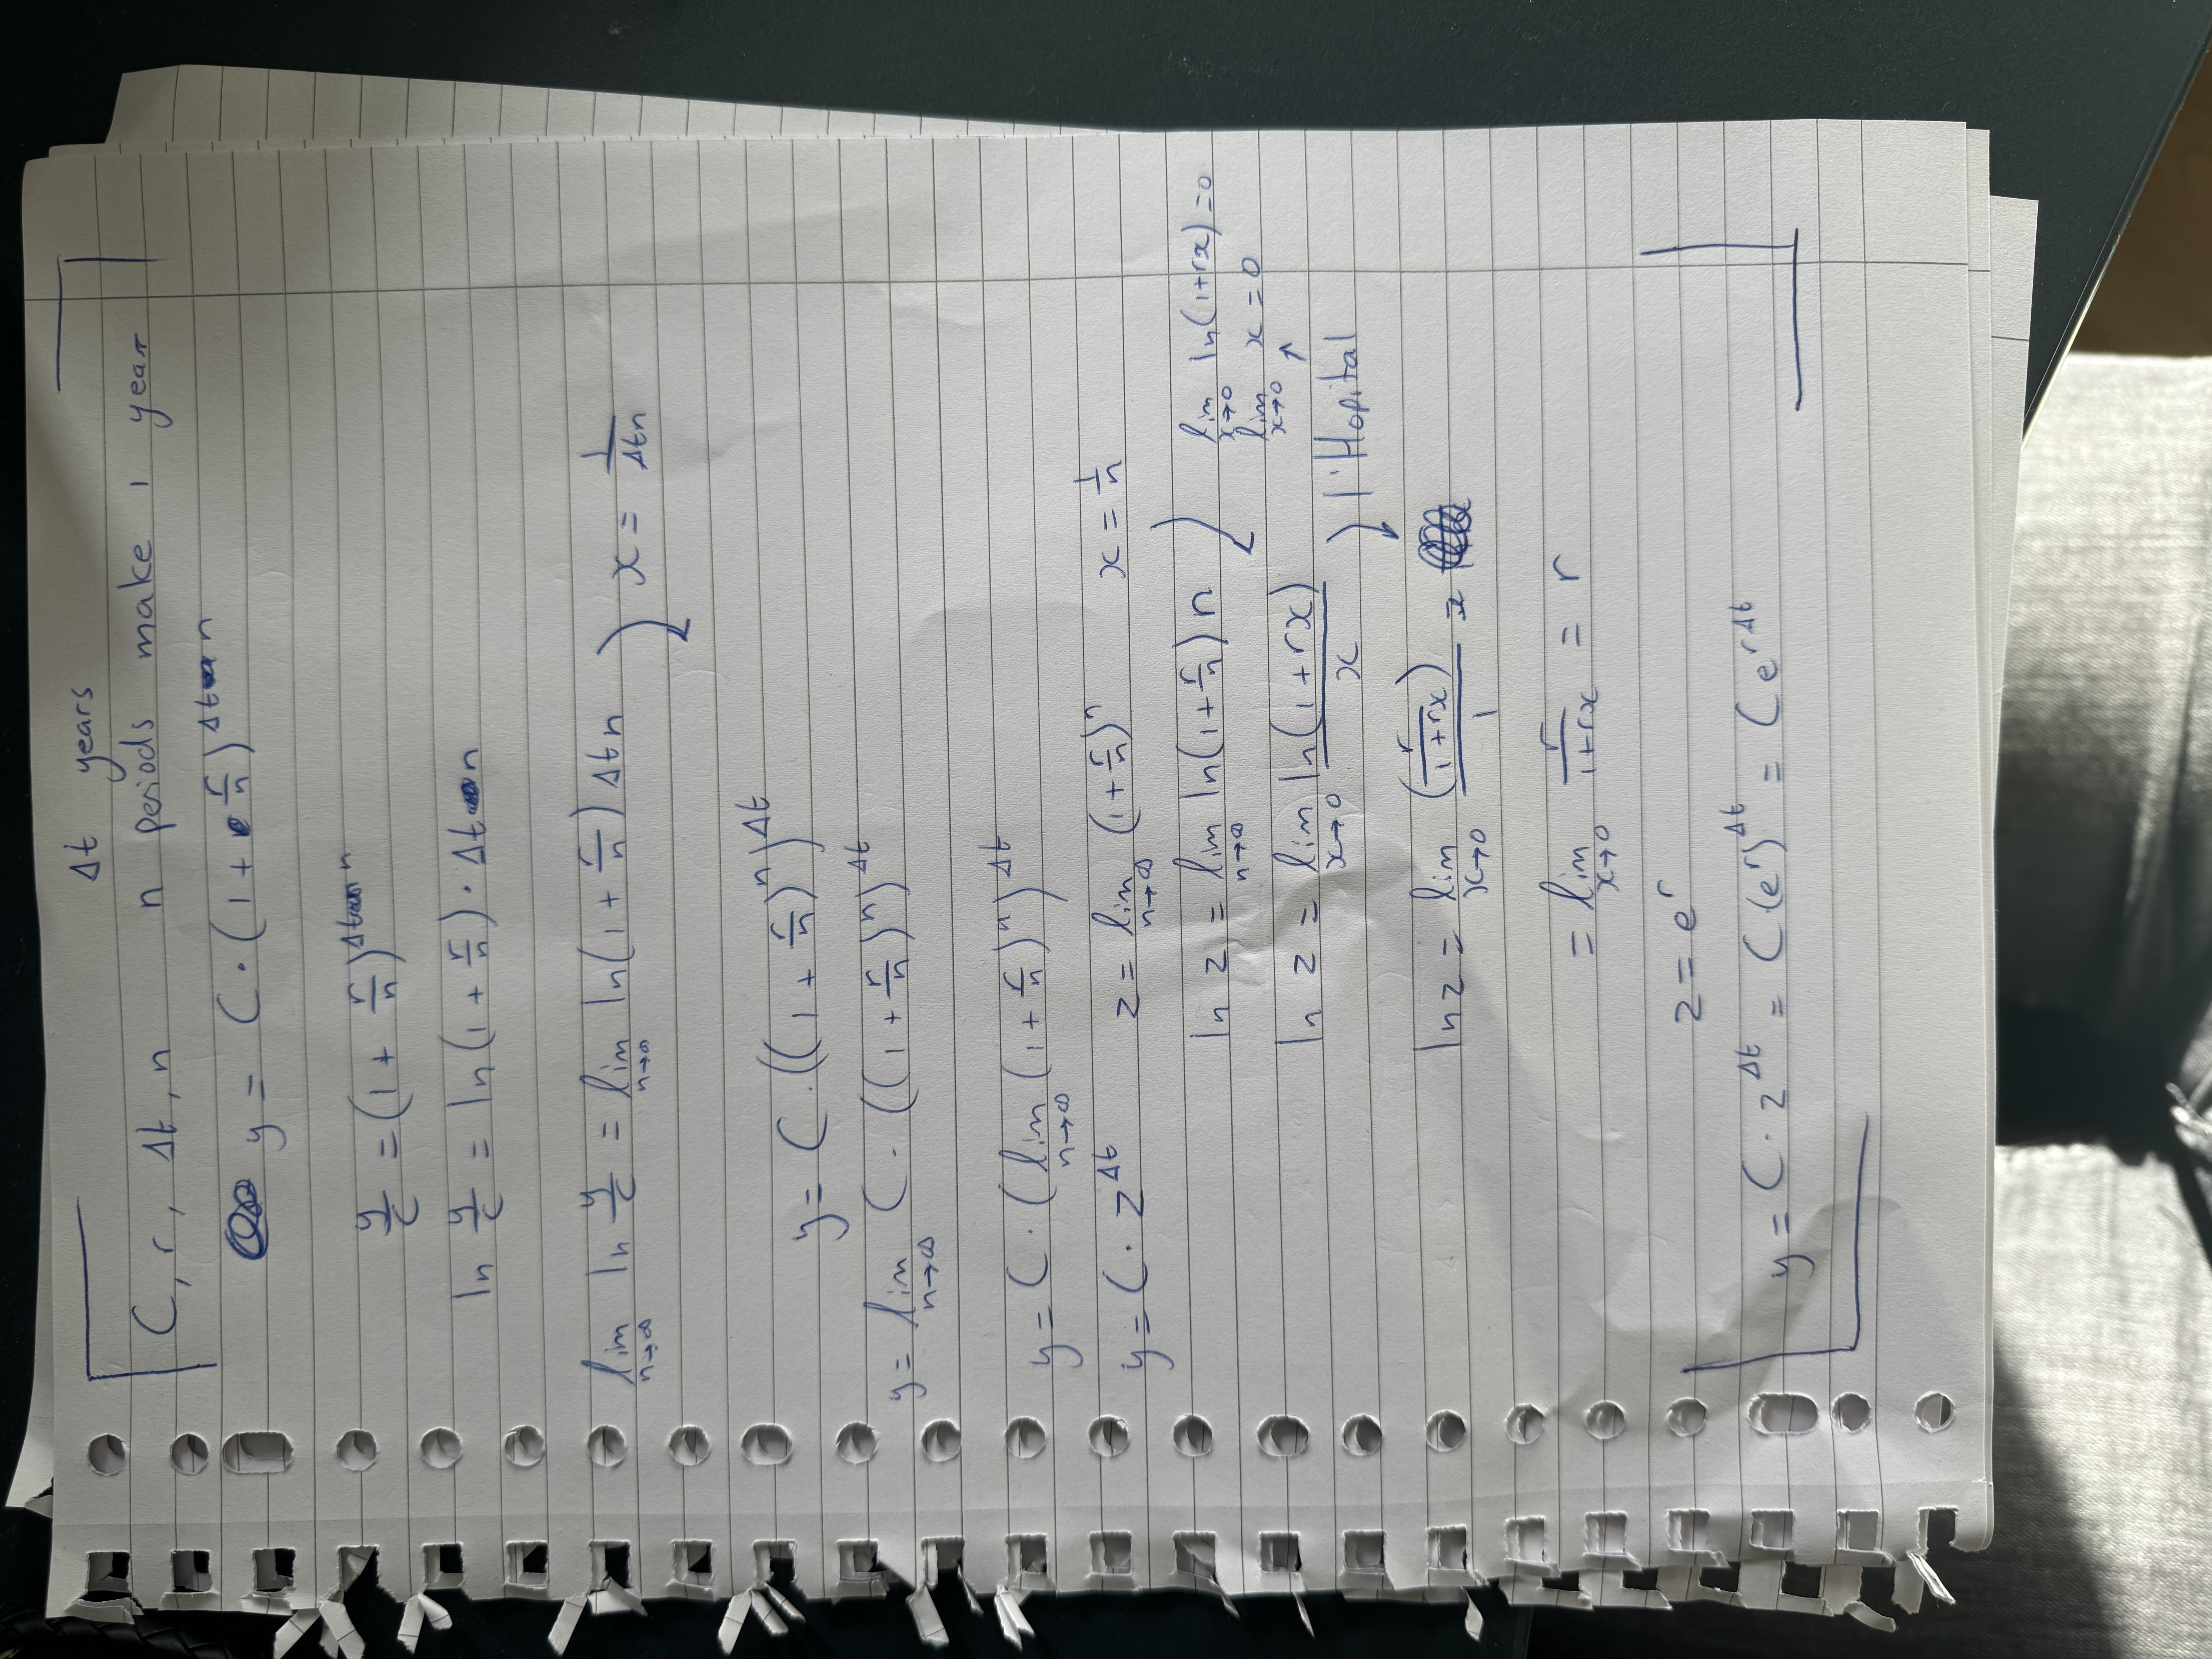 Δt years
C, r, Δt, n n periods make 1 year
y = C · (1 + r/n)^Δt n
y/c = (1 + r/n)^Δt n
ln y/c = ln(1 + r/n) · Δt n
lim n→∞ ln y/c = lim n→∞ ln(1 + r/n) Δtn x = 1/Δtn
y = C · ((1 + r/n)^n)^Δt
y = lim n→∞ C · ((1 + r/n)^n)^Δt
y = C · (lim n→∞ (1 + r/n)^n)^Δt
y = C · z^Δt z = lim n→∞ (1 + r/n)^n x = 1/n
ln z = lim n→∞ ln(1 + r/n) n lim x→0 ln(1+rx) = 0
lim x→0 x = 0
ln z = lim x→0 ln(1 + rx)/x ↑
l'Hopital
ln z = lim x→0 (r/1+rx)/1 =
= lim x→0 r/1+rx = r
z = e^r
y = C · z^Δt = C(e^r)^Δt = Ce^rΔt